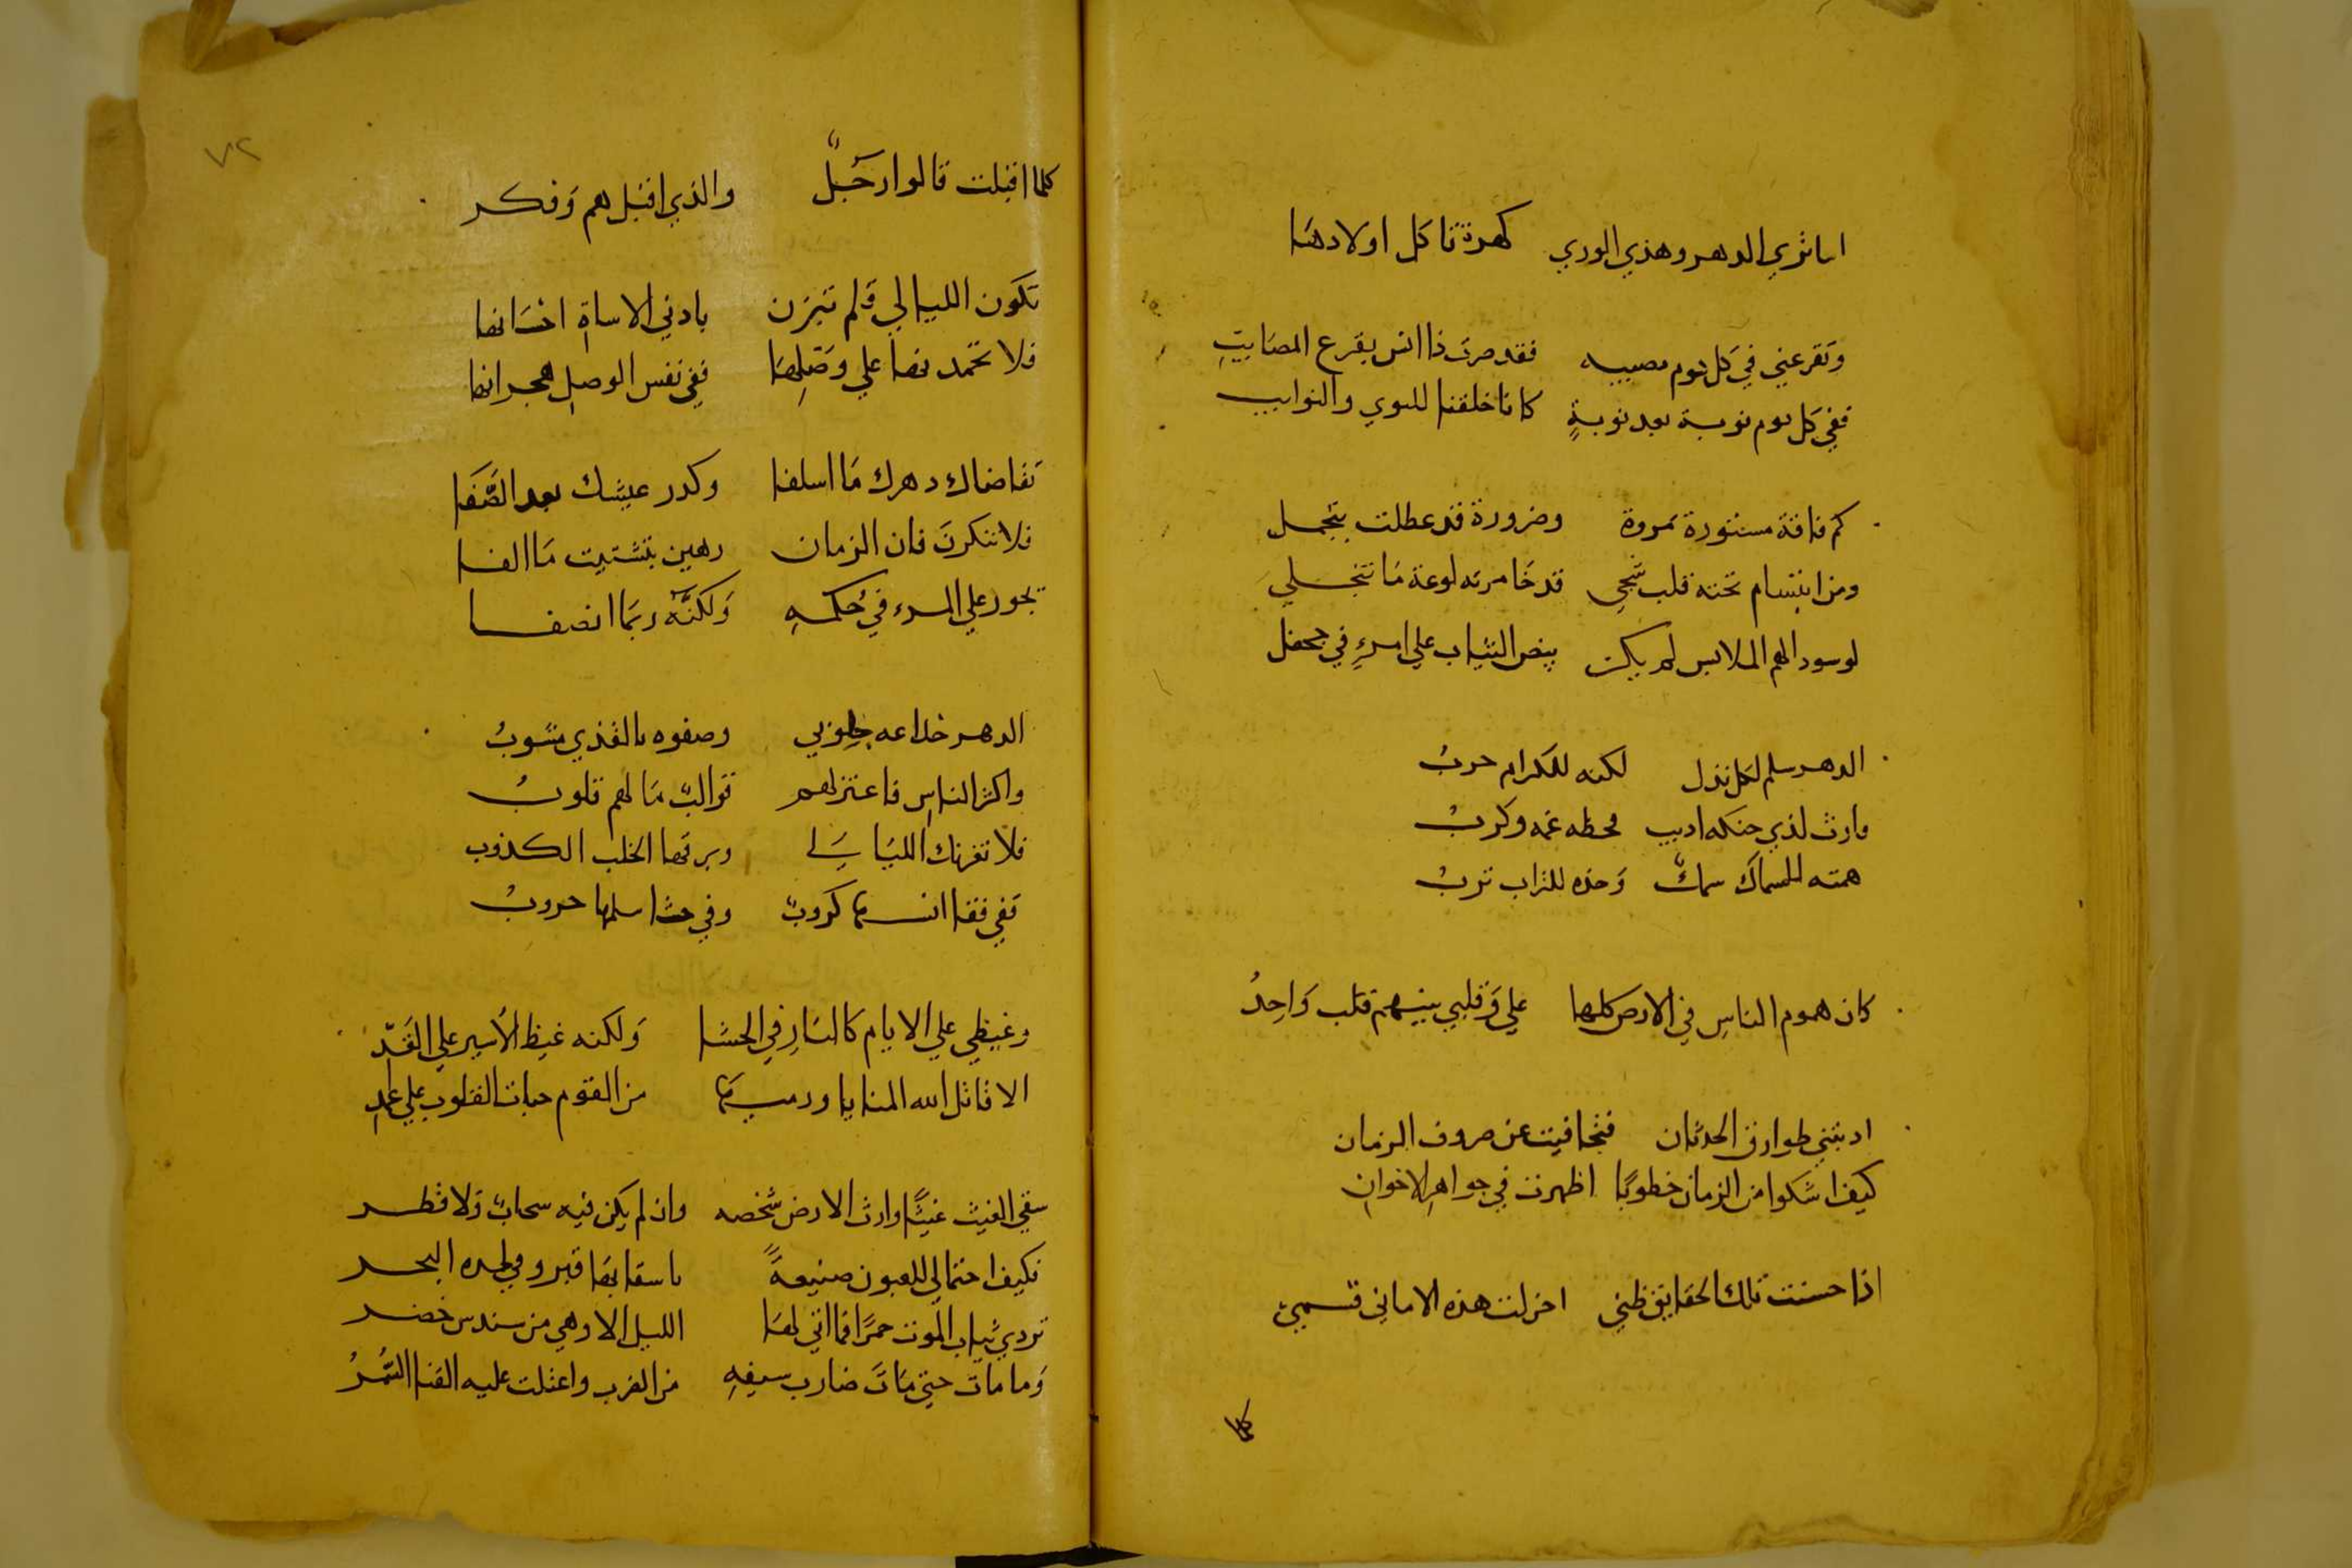 اما تري الدهر وهذي الوري كهرة تاكل اولادها
وتقرعني في كل يوم مصيبه فقد صرت ذا انس بقرع المصايب
ففي كل يوم نوبة بعد نوبة كاننا خلقنا للنوي والنوايب
كم فاقة مستورة بمروة وضرورة قد عطلت بتجمل
ومن ابتسام تحته قلب شجي قد خامرته لوعة ما تنجلي
لو سود الهم الملابس لم يكن بيض الثياب علي امرء في محفل
الدهر سلم لكل نذل لكنه للكرام حرب
وارث لذي حنكه اديب محظه غمه وكرب
همته للسماك سمك وخده للتراب ترب
كان هموم الناس في الارض كلها علي وقلبي بينهم قلب واحد
ادبتني طوارق الحدثان فتجافيت عن صروف الزمان
كيف اشكوا من الزمان خطوبا اظهرت في جواهر الاخوان
اذا حسنت تلك الحقايق ظني اخرلت هذه الاماني قسمي
كلما
٧٢
كلما اقبلت قالوا رحل والذي اقبل هم وفكر
تكون الليالي ولم تتزن بادني الاساة احسانها
فلا تحمدنها علي وصلها ففي نفس الوصل هجرانها
تقاضاك دهرك ما اسلفا وكدر عيشك بعد الصفا
فلا تنكرن فان الزمان رهين بتشتيت ما الفا
يجور علي المرء في حكمه ولكنه ربما انصفا
الدهر خداعه خلوبي وصفوه بالقذي مشوب
واكثر الناس فاعتزلهم قوالب ما لهم قلوب
فلا تغرنك الليالي وبرقها الخلب الكذوب
ففي قفا انسها كروب وفي حشا سلمها حروب
وغيظي علي الايام كالنار في الحشا ولكنه غيظ الاسير علي القد
الا قاتل الله المنايا ورميها من القوم حبات القلوب علي عمد
سقي الغيث غيثا وارت الارض شخصه وان لم يكن فيه سحاب ولا قطر
فكيف احتمالي للغيوث صنيعة باسقايها قبرا وفي لحده البحر
تردي ثياب الموت حمرا فما اتي لها الليل الا وهي من سندس خضر
وما مات حتي مات ضارب سيفه من الضرب واعتلت عليه القنا السمر